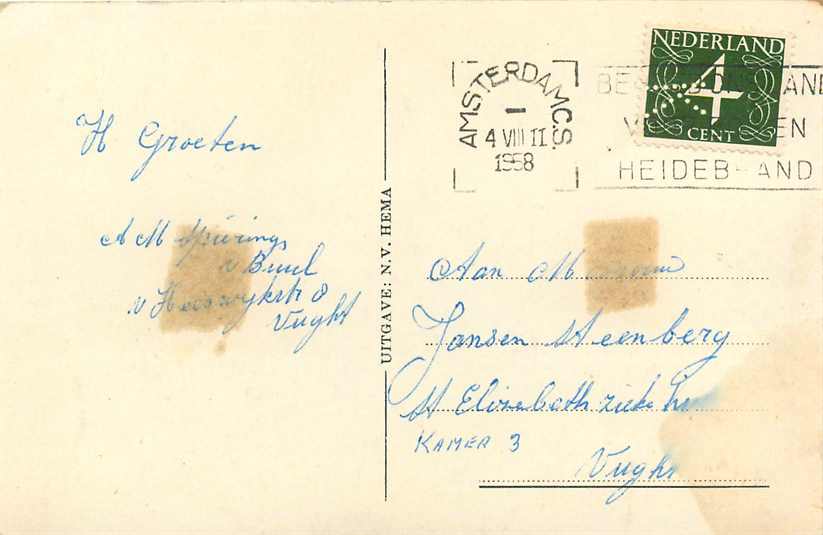 H Groeten
A M Spierings
v Buul
v Heeswykstr 8
Vught
UITGAVE: N.V. HEMA
AMSTERDAM C.S.
4 VIII 11
1958
NEDERLAND
4
CENT
HEIDEBRAND
Aan Mevrouw
Jansen Steenberg
St Elizabethziekenh
KAMER 3
Vught